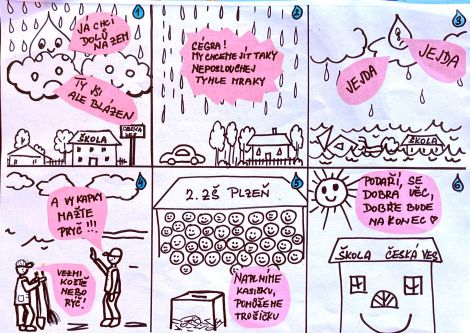 1
JÁ CHCI
DOLŮ
NA ZEM
TY JSI
ALE BLÁZEN
ŠKOLA
ČESKÁ
VES
2
CÉGRA!
MY CHCEME JÍT TAKY
NEPOSLOUCHEJ
TYHLE MRAKY
3
JEJDA
JEJDA
ŠKOLA
4
A VY KAPKY
MAŽTE
PRYČ!!!
VEZMI
KOŠTĚ
NEBO
RÝČ!
5
2. ZŠ PLZEŇ
NAPLNÍME
KASIČKU,
POMŮŽEME
TROŠIČKU
6
PODAŘÍ, SE
DOBRÁ VĚC,
DOBŘE BUDE
NA KONEC
ŠKOLA ČESKÁ VES